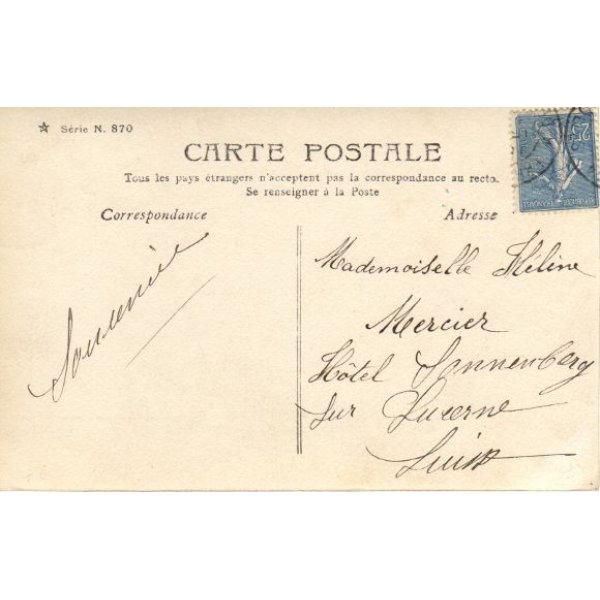 ☆ Série N. 870
CARTE POSTALE
Tous les pays étrangers n'acceptent pas la correspondance au recto.
Se renseigner à la Poste
Correspondance
Adresse
Souvenir
Mademoiselle Hélène
Mercier
Hôtel Sonnenberg
sur Lucerne
Suisse
25
REPUBLIQUE
FRANÇAISE